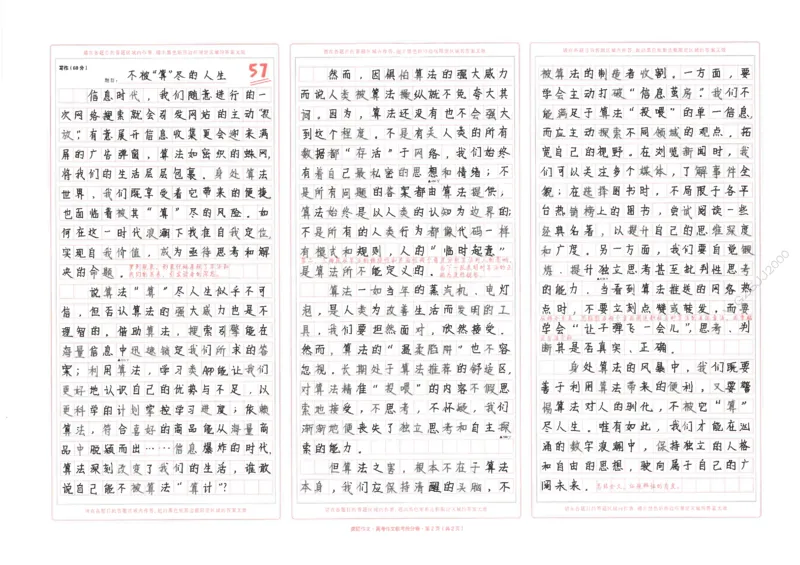 写作（60分）
57
不被“算”尽的人生
信息时代，我们随意进行的一
次网络搜索就会引发网站的主动“投
放”。有意展开信息收集更会迎来满
屏的广告弹窗，算法如密织的蛛网，
将我们的生活层层包裹。身处算法
世界，我们既享受着它带来的便捷，
也面临着被其“算”尽的风险。如
何在这一时代浪潮下找准自我定位，
实现自我价值，成为亟待思考和解
决的命题。
说算法“算”尽人生似乎不可
信，但否认算法的强大威力也是不
理智的，借助算法，搜索引擎能在
海量信息中迅速锁定我们所求的答
案；利用算法，学习类App能让我们
更好地认识自己的优势与不足，以
更科学的计划掌控学习进度；依赖
算法，符合喜好的商品能从海量商
品中脱颖而出……信息爆炸的时代，
算法深刻改变了我们的生活，谁敢
说自己能不被算法“算计”？
然而，因惧怕算法的强大威力
而说人类被算法操纵就不免夸大其
词，因为，算法还没有也不会强大
到这个程度。不是有关人类的所有
数据都“存活”于网络，我们始终
有着自己最私密的思想和情绪；不
是所有问题的答案都由算法提供，
算法始终是以人类的认知为边界的；
不是所有的人类行为都像代码一样
有模式和规则，人的“临时起意”
是算法所不能定义的。
算法一如当年的蒸汽机、电灯
泡，是人类为改善生活而发明的工
具，我们要坦然面对，欣然接受。
然而，算法的“温柔陷阱”也不容
忽视。长期处于算法推荐的舒适区，
对算法精准“投喂”的内容不假思
索地接受，不思考，不怀疑，我们
渐渐地便丧失了独立思考和自主探
索的能力。
但算法之害，根本不在于算法
本身，我们应保持清醒的头脑，不
被算法的制造者收割。一方面，要
学会主动打破“信息茧房”。我们不
能满足于算法“投喂”的单一信息，
而应主动搜索不同领域的观点，拓
宽自己的视野。在浏览新闻时，我
们可以关注多个媒体，了解事件全
貌；在选择图书时，不局限于各平
台热销榜上的图书，尝试阅读一些
经典名著，以提升自己的思维深度
和广度。另一方面，我们要自觉锻
炼、提升独立思考甚至批判性思考
的能力。当看到算法推送的网络热
点时，不要立刻点赞或转发，而要
学会“让子弹飞一会儿”，思考、判
断其是否真实、正确。
身处算法的风暴中，我们既要
善于利用算法带来的便利，又要警
惕算法对人的驯化，不被它“算”
尽人生。唯有如此，我们才能在汹
涌的数字浪潮中，保持独立的人格
和自由的思想，驶向属于自己的广
阔未来。